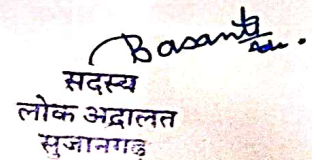 Basant
Adv.
सदस्य
लोक अदालत
सुजानगढ